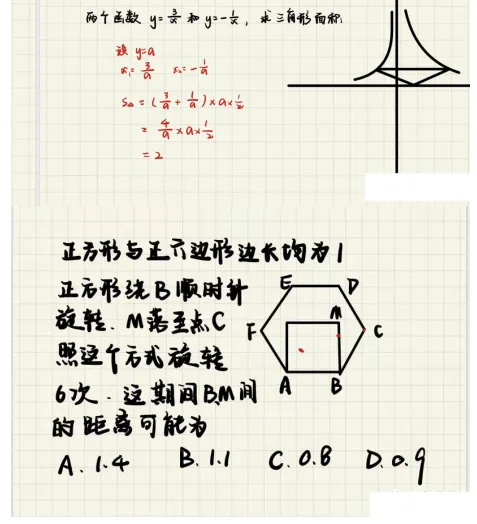 两个函数 y=3/x 和 y=-1/x, 求三角形面积
设 y=a
x₁=3/a x₂=-1/a
S△=(3/a+1/a)×a×1/2
=4/a×a×1/2
=2
正方形与正六边形边长均为1
正方形绕B顺时针
旋转.M落至点C
照这个方式旋转
6次.这期间BM间
的距离可能为
E D
M
F C
A B
A.1.4 B.1.1 C.0.8 D.0.9